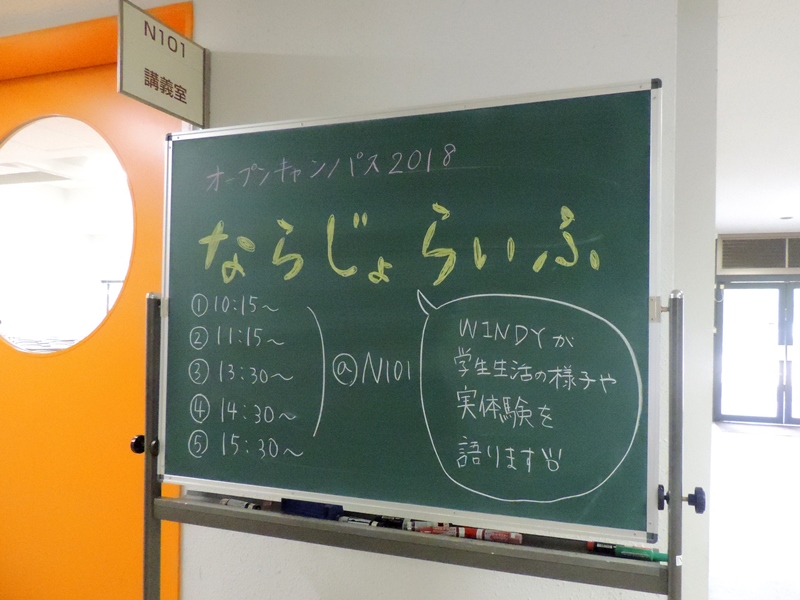 N101
講義室
オープンキャンパス2018
ならじょらいふ
① 10:15~
② 11:15~
③ 13:30~
④ 14:30~
⑤ 15:30~
@N101
WINDYが
学生生活の様子や
実体験を
語ります